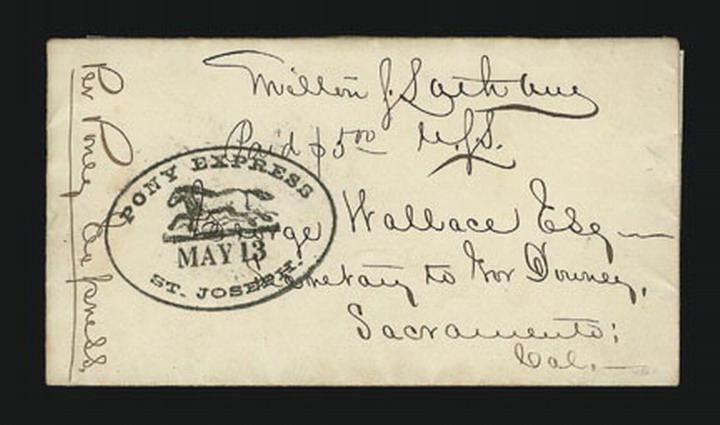 Milton J. Latham
Paid $5.00 U.S.S.
George Wallace Esq
Secretary to Gov Downey,
Sacramento;
Cal.
Per Pony Express
PONY EXPRESS
MAY 13
ST. JOSEPH.